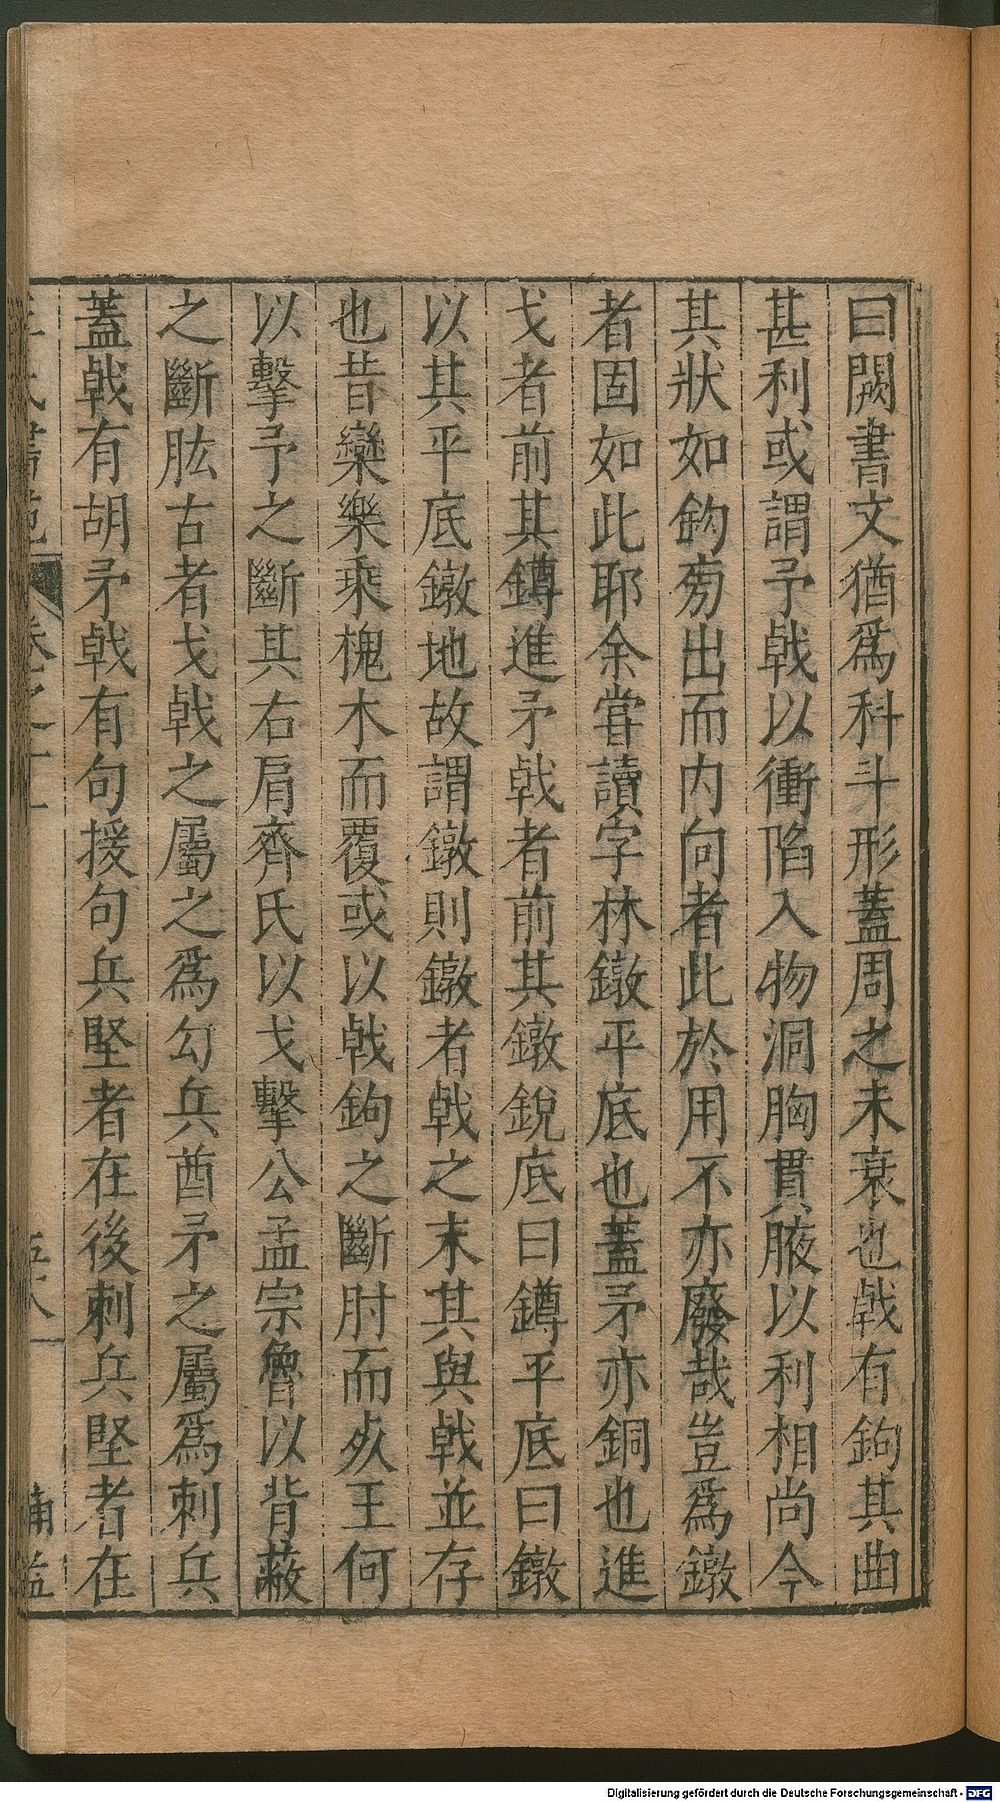 曰闕書文猶爲科斗形蓋周之未衰也戟有鉤其曲
甚利或謂予戟以衝陷入物洞胸貫腋以利相尚今
其狀如鈎旁出而内向者此於用不亦廢哉豈爲鐓
者固如此耶余嘗讀字林鐓平底也蓋矛亦銅也進
戈者前其鐏進矛戟者前其鐓銳底曰鐏平底曰鐓
以其平底鐓地故謂鐓則鐓者戟之末其與戟並存
也昔欒樂乘槐木而覆或以戟鉤之斷肘而死王何
以擊予之斷其右肩齊氏以戈擊公孟宗魯以背蔽
之斷肱古者戈戟之屬之爲勾兵酋矛之屬爲刺兵
蓋戟有胡矛戟有句援句兵堅者在後刺兵堅者在
Digitalisierung gefördert durch die Deutsche Forschungsgemeinschaft - DFG